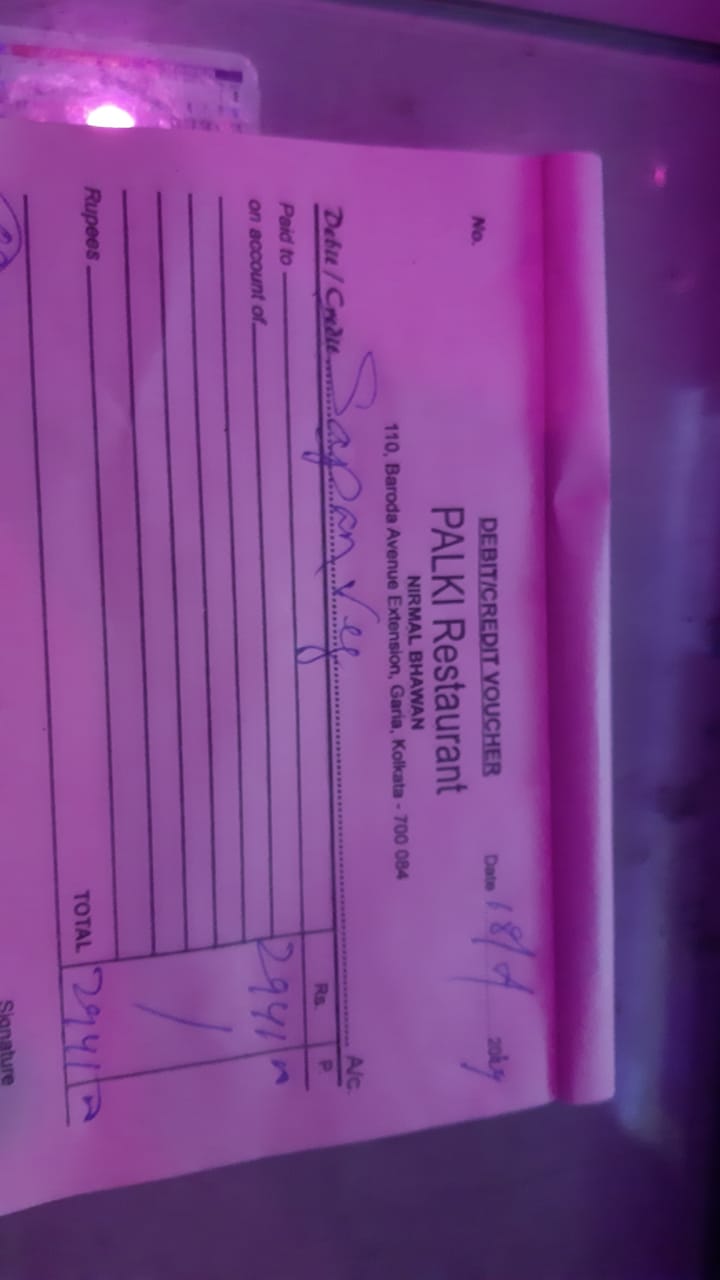 DEBIT/CREDIT VOUCHER
No. Date 18/
PALKI Restaurant
NIRMAL BHAWAN
110, Baroda Avenue Extension, Garia, Kolkata - 700 084
Debit / Credit Sapan Veg A/c.
Rs. P.
Paid to 2941
on account of
Rupees TOTAL 2941
Signature